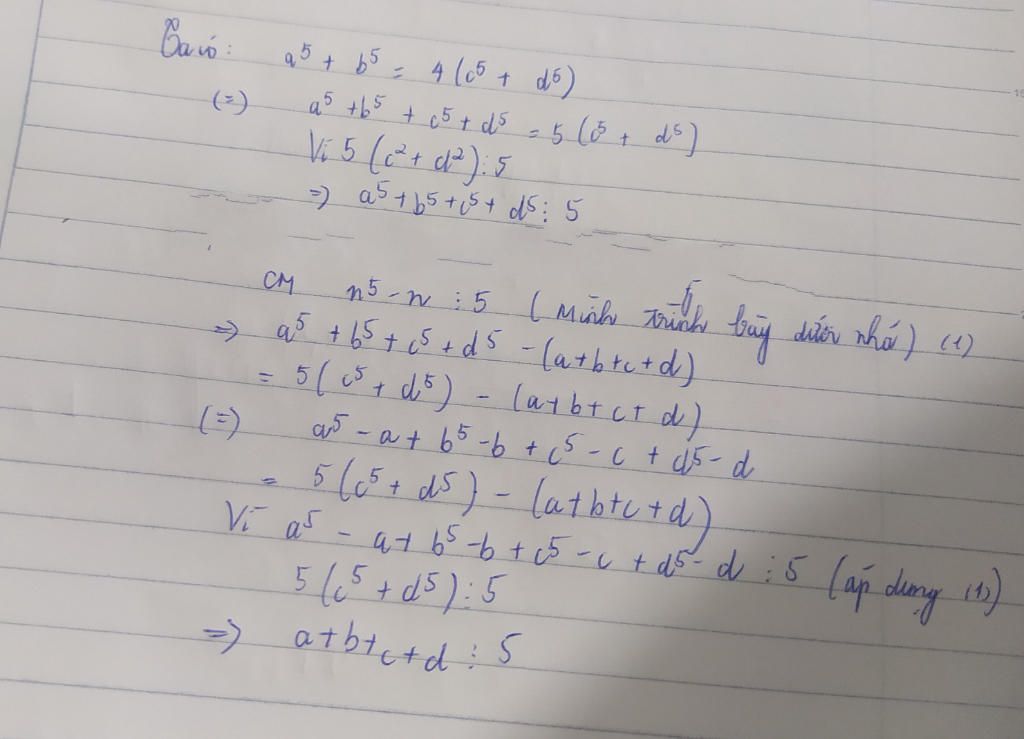 Ta có: a⁵ + b⁵ = 4(c⁵ + d⁵)
(=) a⁵ + b⁵ + c⁵ + d⁵ = 5(c⁵ + d⁵)
Vì 5(c² + d²) ⋮ 5
=> a⁵ + b⁵ + c⁵ + d⁵ ⋮ 5
CM n⁵ - n ⋮ 5 (Mình trình bày dưới nhá) (1)
=> a⁵ + b⁵ + c⁵ + d⁵ - (a+b+c+d)
= 5(c⁵ + d⁵) - (a+b+c+d)
(=) a⁵ - a + b⁵ - b + c⁵ - c + d⁵ - d
= 5(c⁵ + d⁵) - (a+b+c+d)
Vì a⁵ - a + b⁵ - b + c⁵ - c + d⁵ - d ⋮ 5 (áp dụng (1))
5(c⁵ + d⁵) ⋮ 5
=> a+b+c+d ⋮ 5